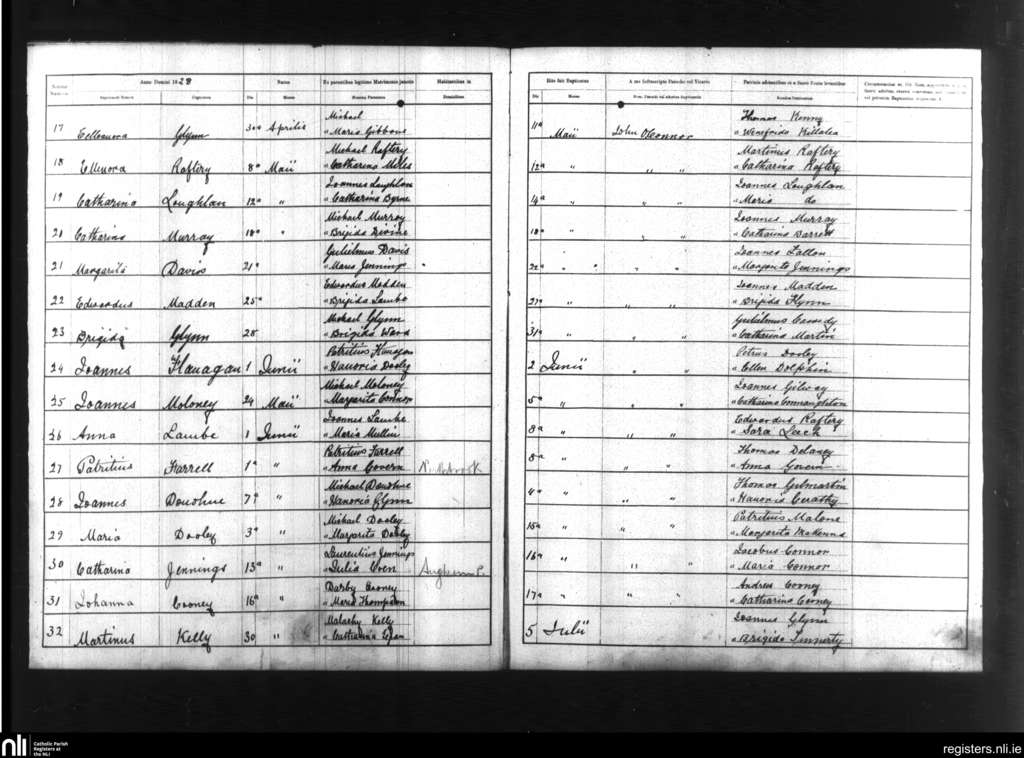 Anno Domini 1828
Natus
Ex parentibus legitimo Matrimonio junctis
Habitantibus in
Dic
Mense
Nomina Parentum
Domicilium
17 Elleanora Glynn 30a Aprilis Michael
" Maria Gibbons
18 Ellenora Raftery 8a Maii Michael Raftery
" Catharina Miles
19 Catharina Loughlan 12a " Joannes Loughlan
" Catharina Byrne
20 Catharina Murray 18a " Michael Murray
" Brigida Devine
21 Margarita Davis 21a Gulielmus Davis
" Maria Jennings
22 Edwardus Madden 25a Edwardus Madden
" Brigida Lambe
23 Brigida Glynn 28 Michael Glynn
" Brigida Ward
24 Joannes Flanagan 1 Junii Patritius
" Hanoria Dooley
25 Joannes Moloney 24 Maii Michael Moloney
" Margarita Connor
26 Anna Lambe 1 Junii Joannes Lambe
" Maria Mullin
27 Patritius Farrell 1a " Patritius Farrell
" Anna Govern
28 Joannes Donohue 7a " Michael Donohue
" Hanoria Glynn
29 Maria Dooley 3a " Michael Dooley
" Margarita Dooley
30 Catharina Jennings 13a " Laurentius Jennings
" Julia
31 Johanna Cooney 16a " Darby Cooney
" Maria Thompson
32 Martinus Kelly 30 " Malachy Kelly
" Catharina Egan
Rite fuit Baptizatus
A me Infrascripto Parocho vel Vicario
Patrinis adstantibus et e Sacro Fonte levantibus
Die
Mense
11a Maii John OConnor Thomas Kenny
" Winefrida Killalea
12a " " " Martinus Raftery
" Catharina Raftery
14a " " " Joannes Loughlan
" Maria do
18a " " " Joannes Murray
" Catharina Barrett
22a " " " Joannes Fallon
" Margarita Jennings
27a " " " Joannes Madden
" Brigida Flynn
31a " " " Gulielmus Cassidy
" Catharina Martin
2 Junii " " Petrus Dooley
" Ellen Dolphin
5a " " " Joannes Gilway
" Catharina Connaughton
8a " " " Edwardus Raftery
" Sara Leech
8a " " " Thomas Delaney
" Anna Govern
4a " " " Thomas Gilmartin
" Hanoria Gerathy
15a " " " Patritius Malone
" Margarita McKenna
16a " " " Jacobus Connor
" Maria Connor
17a " " " Andrew Cooney
" Catharina Cooney
5 Julii Joannes Glynn
" Brigida Finnerty
nli
Catholic Parish
Registers at
the NLI
registers.nli.ie